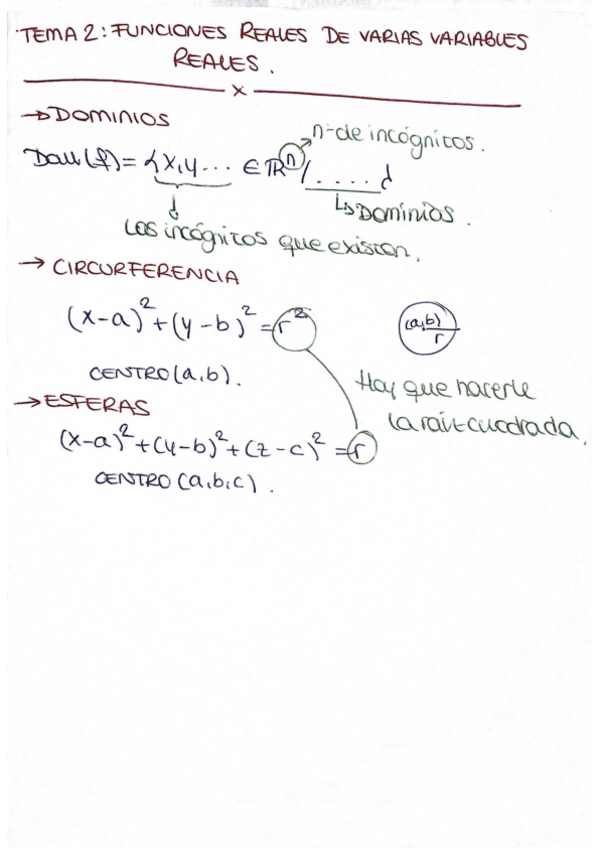 TEMA 2: FUNCIONES REALES DE VARIAS VARIABLES
REALES.
x
→DOMINIOS
nº de incógnitas.
Dom(f)={x,y... ∈ ℝⁿ/ ....}
↳Dominios.
Las incógnitas que existen.
→ CIRCURFERENCIA
(x-a)²+(y-b)²=r²
(a,b)
r
CENTRO(a,b).
Hay que hacerle
la raíz cuadrada.
→ESFERAS
(x-a)²+(y-b)²+(z-c)²=r
CENTRO(a,b,c).